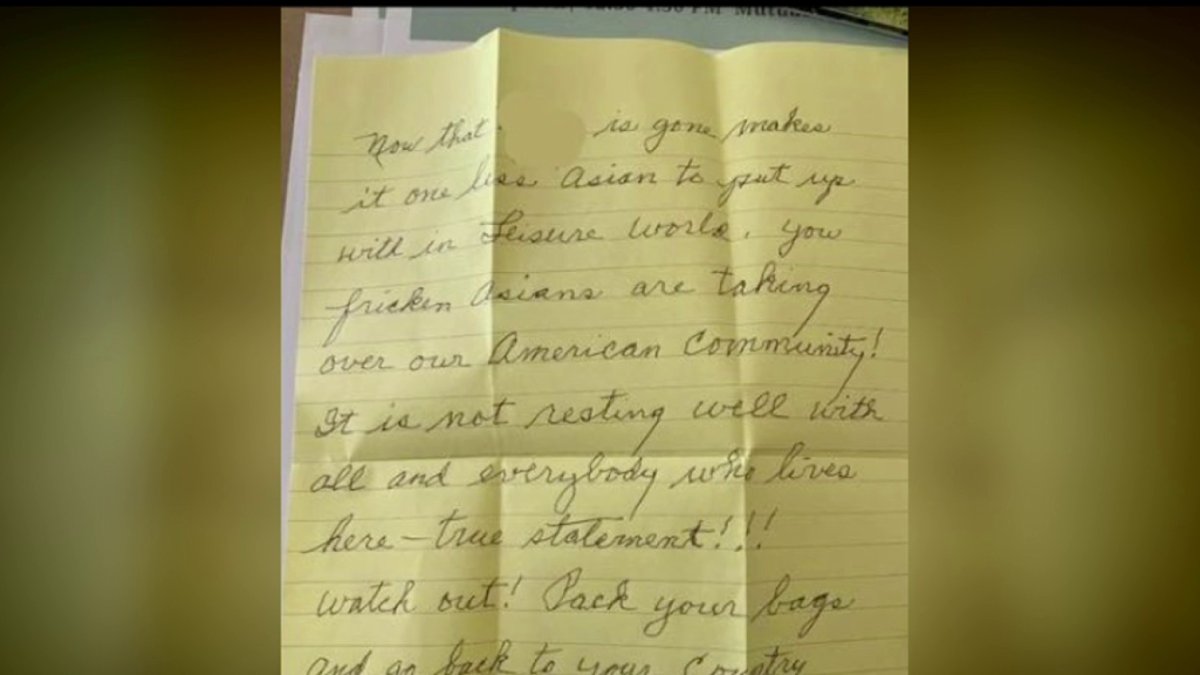 1:30 PM
Now that is gone makes
it one less Asian to put up
with in Leisure World. You
fricken Asians are taking
over our American Community!
It is not resting well with
all and everybody who lives
here - true statement!!!
watch out! Pack your bags
and go back to your Country